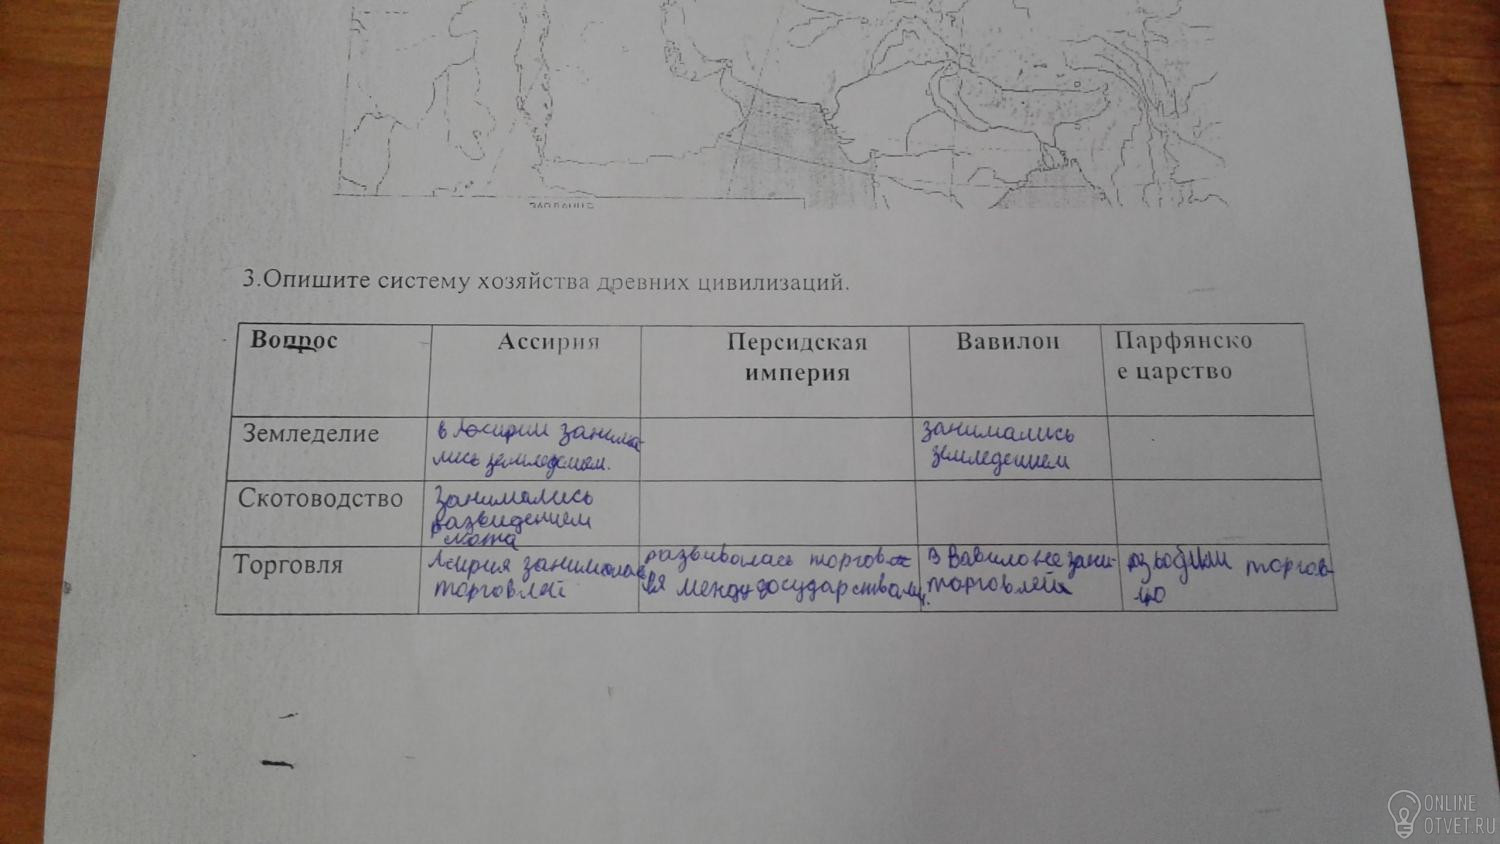 ЗАДАНИЕ
3.Опишите систему хозяйства древних цивилизаций.
Вопрос
Ассирия
Персидская
империя
Вавилон
Парфянско
е царство
Земледелие
в Ассирии занима
лись земледелием.
занимались
земледением
Скотоводство
Занимались
развидением
скота
Торговля
Асирия занималась
торговлей
развивалась торгов
ля между государствами.
В Вавилоне зани-
торговлей
торгов-
лю
ONLINE
OTVET.RU